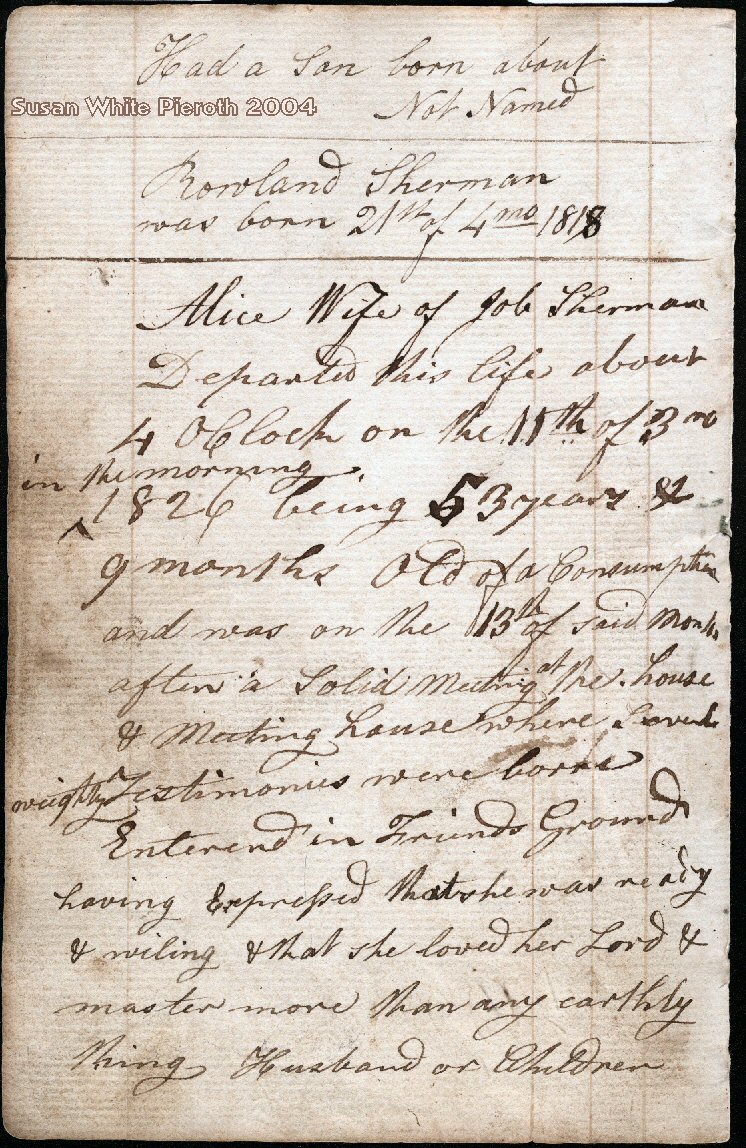 Had a Son born about
Susan White Pieroth 2004
Not Named
Rowland Sherman
was born 21st of 4mo 1818
Alice Wife of Job Sherman
Departed this life about
4 OClock on the 11th of 3mo
in the morning
1826 being 53 years &
9 months Old of a Consumption
and was on the 13th of said Month
after a Solid Meeting at the house
& Meeting house where Severl
weighty Testimonies were borne
Enterend in Friends Ground
having Expressed that she was ready
& wiling & that she loved her Lord &
master more than any earthly
thing Husband or Children